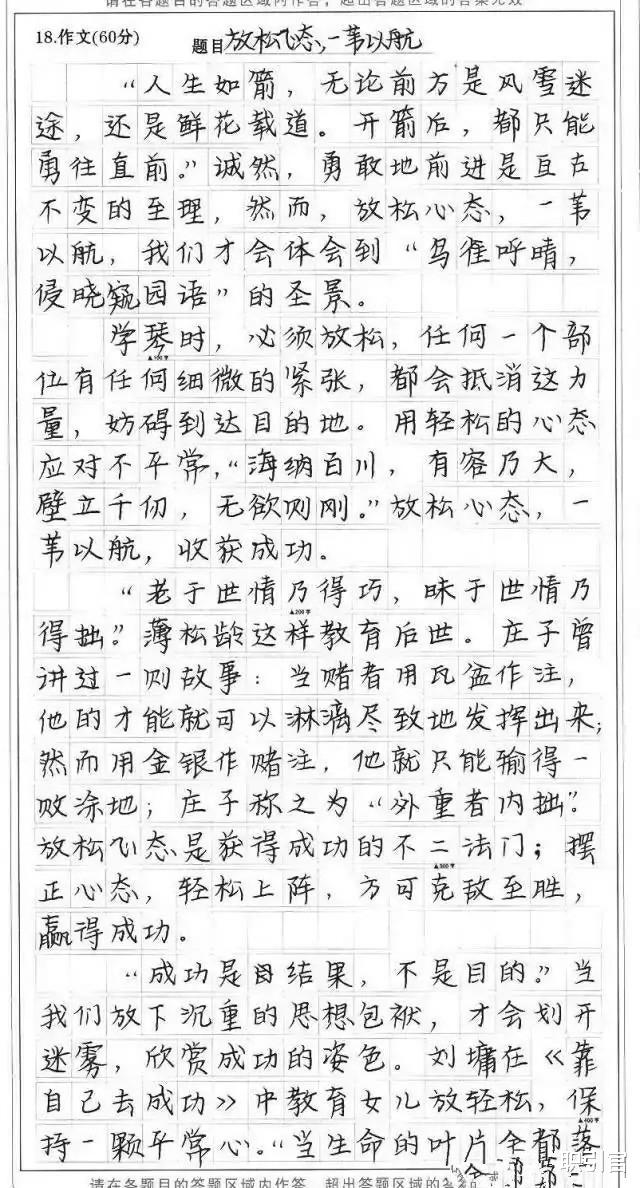 请在各题目的答题区域内作答，超出答题区域的答案无效
18.作文(60分) 题目 放松心态,一苇以航
“人生如箭，无论前方是风雪迷
途，还是鲜花载道。开箭后，都只能
勇往直前。”诚然，勇敢地前进是亘古
不变的至理，然而，放松心态，一苇
以航，我们才会体会到“鸟雀呼晴，
侵晓窥园语”的圣景。
学琴时，必须放松，任何一个部
▲100字
位有任何细微的紧张，都会抵消这力
量，妨碍到达目的地。用轻松的心态
应对不平常，“海纳百川，有容乃大，
壁立千仞，无欲则刚。”放松心态，一
苇以航，收获成功。
“老于世情乃得巧，昧于世情乃
▲200字
得拙。”薄松龄这样教育后世。庄子曾
讲过一则故事：当赌者用瓦盆作注，
他的才能就可以淋漓尽致地发挥出来；
然而用金银作赌注，他就只能输得一
败涂地；庄子称之为“外重者内拙”。
放松心态是获得成功的不二法门；摆
▲300字
正心态，轻松上阵，方可克敌至胜，
赢得成功。
“成功是结果，不是目的。”当
我们放下沉重的思想包袱，才会划开
迷雾，欣赏成功的姿色。刘墉在《靠
自己去成功》中教育女儿放轻松，保
▲400字
持一颗平常心。“当生命的叶片全都落
请在各题目的答题区域内作答，超出答题区域的
职引官